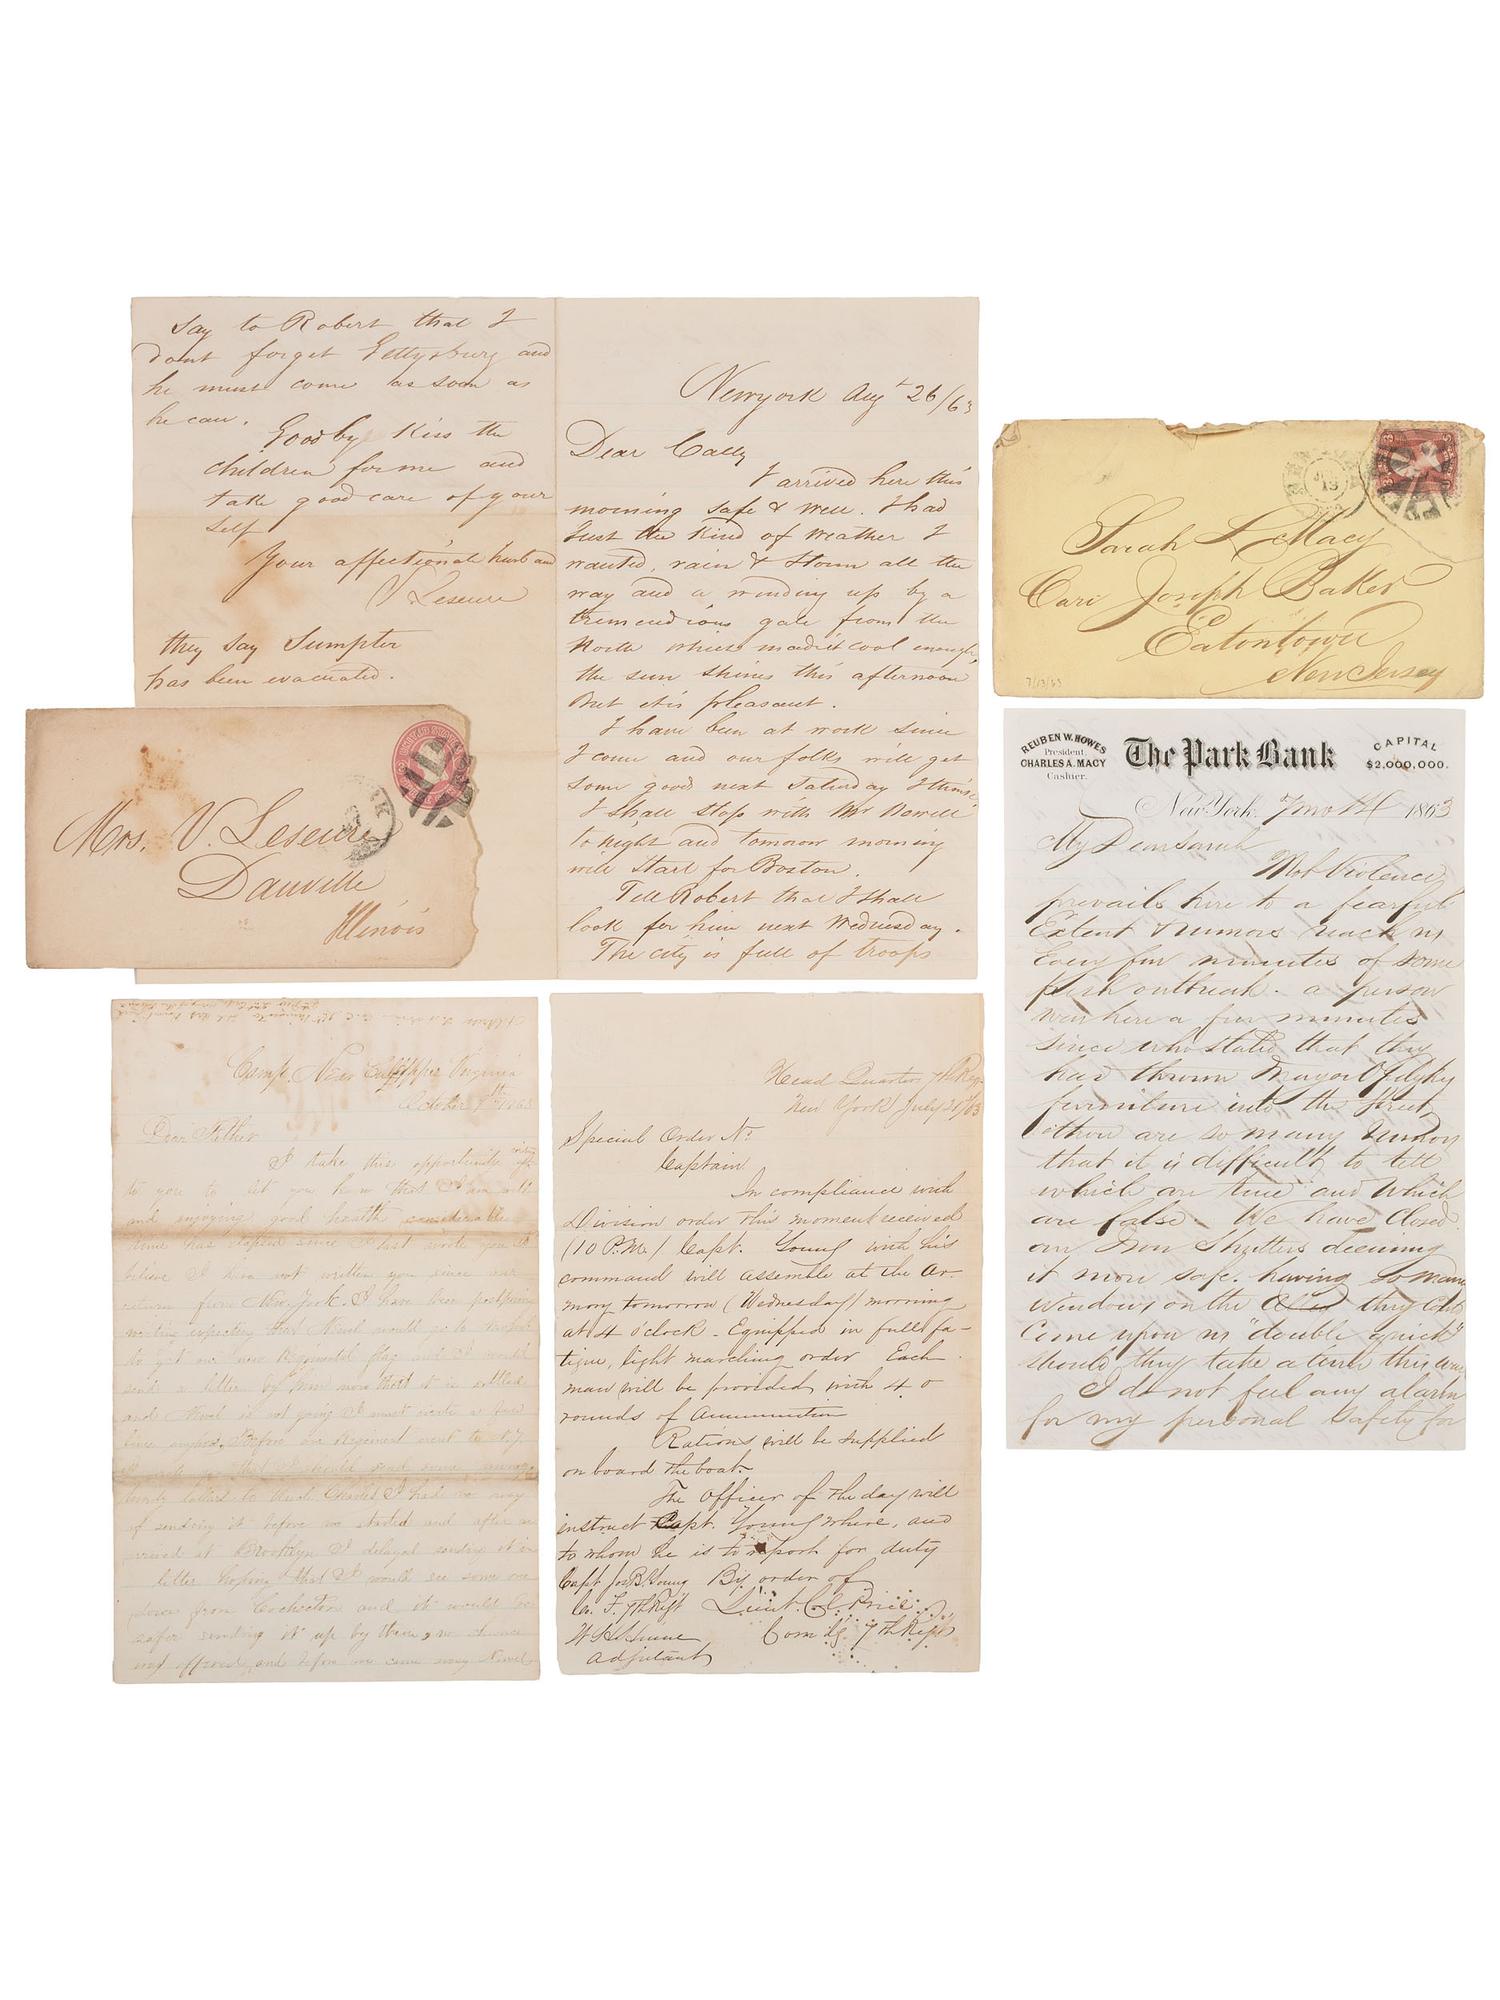 Say to Robert that I
dont forget Gettysburg and
he must come as soon as
he can.
Goodby Kiss the
children for me and
take good care of your
self
Your affectionate husband
V. Leseure
they say Sumpter
has been evacuated.
Newyork Augt 26/63
Dear Cally
I arrived here this
morning safe & well. I had
Just the Kind of weather I
wanted, rain & Storm all the
way and a winding up by a
tremendious gale from the
North which madeit cool enough,
the sun shines this afternoon
But it is pleasant.
I have been at work since
I come and our folks will get
some goods next Saturday I think
I shall stop with Mr Newell
to night and tomorow morning
will start for Boston.
Tell Robert that I shall
look for him next Wednesday.
The city is full of troops
Mrs. V. Leseure
Danville
Illinois
3
3
Sarah L. Macy
Care Joseph Baker
Eatontown
New Jersey
7/13/63
REUBEN W. HOWES
President.
CHARLES A. MACY
Cashier.
The Park Bank
CAPITAL
$2,000,000.
New York, 7 mo 1863
My Dear Sarah
Mob Violence
prevails here to a fearful
Extent & rumors reach us
Every few minutes of some
fresh outbreak. a person
was here a few minutes
since who stated that they
had thrown Mayor Opdyke
furniture into the Street,
there are so many rumors
that it is difficult to tell
which are true and which
are false. We have closed
our Iron Shutters deeming
it more safe. having so many
windows on the they could
Come upon us "double quick"
should they take a turn this way
I do not feel any alarm
for my personal Safety for
Camp Near Culpepper Virginia
October 1863
Dear Father
I take this opportunity
to you to let you know that I am well
and enjoying good health considerable
time has elapsed since I last wrote you I
believe I have not written you since our
return from New York. I have been postponing
writing expecting that Newel would go to
to get our new Regimental flag and I would
send a letter by him now that it is settled
and Newel is not going I must write a few
lines anyhow. Before our Regiment went to N.Y.
that I should send some money
letters to Charles I had no way
of sending it before we started and after ar
rived at Brooklyn I delayed sending it in
letter hoping that I would see some one
from Cochecton and it would be
safer sending it up by them, no chance
offered, and before we came away Newel
Head Quarters 7th Reg
New York July 21st/63
Special Order No
Captain
In compliance with
Division order this moment received
(10 P.M.) Capt. Young with his
command will assemble at the Ar-
mory tomorrow (Wednesday) morning
at 4 o'clock - Equipped in full fa-
tigue, light marching order Each
man will be provided with 40
rounds of Ammunition
Rations will be supplied
on board the boat.
The Officer of the day will
instruct Capt. Young where, and
to whom he is to report for duty
Capt Jas B. Young By order of
Co. F. 7th Regt Lieut. Col Price
Comdg 7th Regt
Adjutant